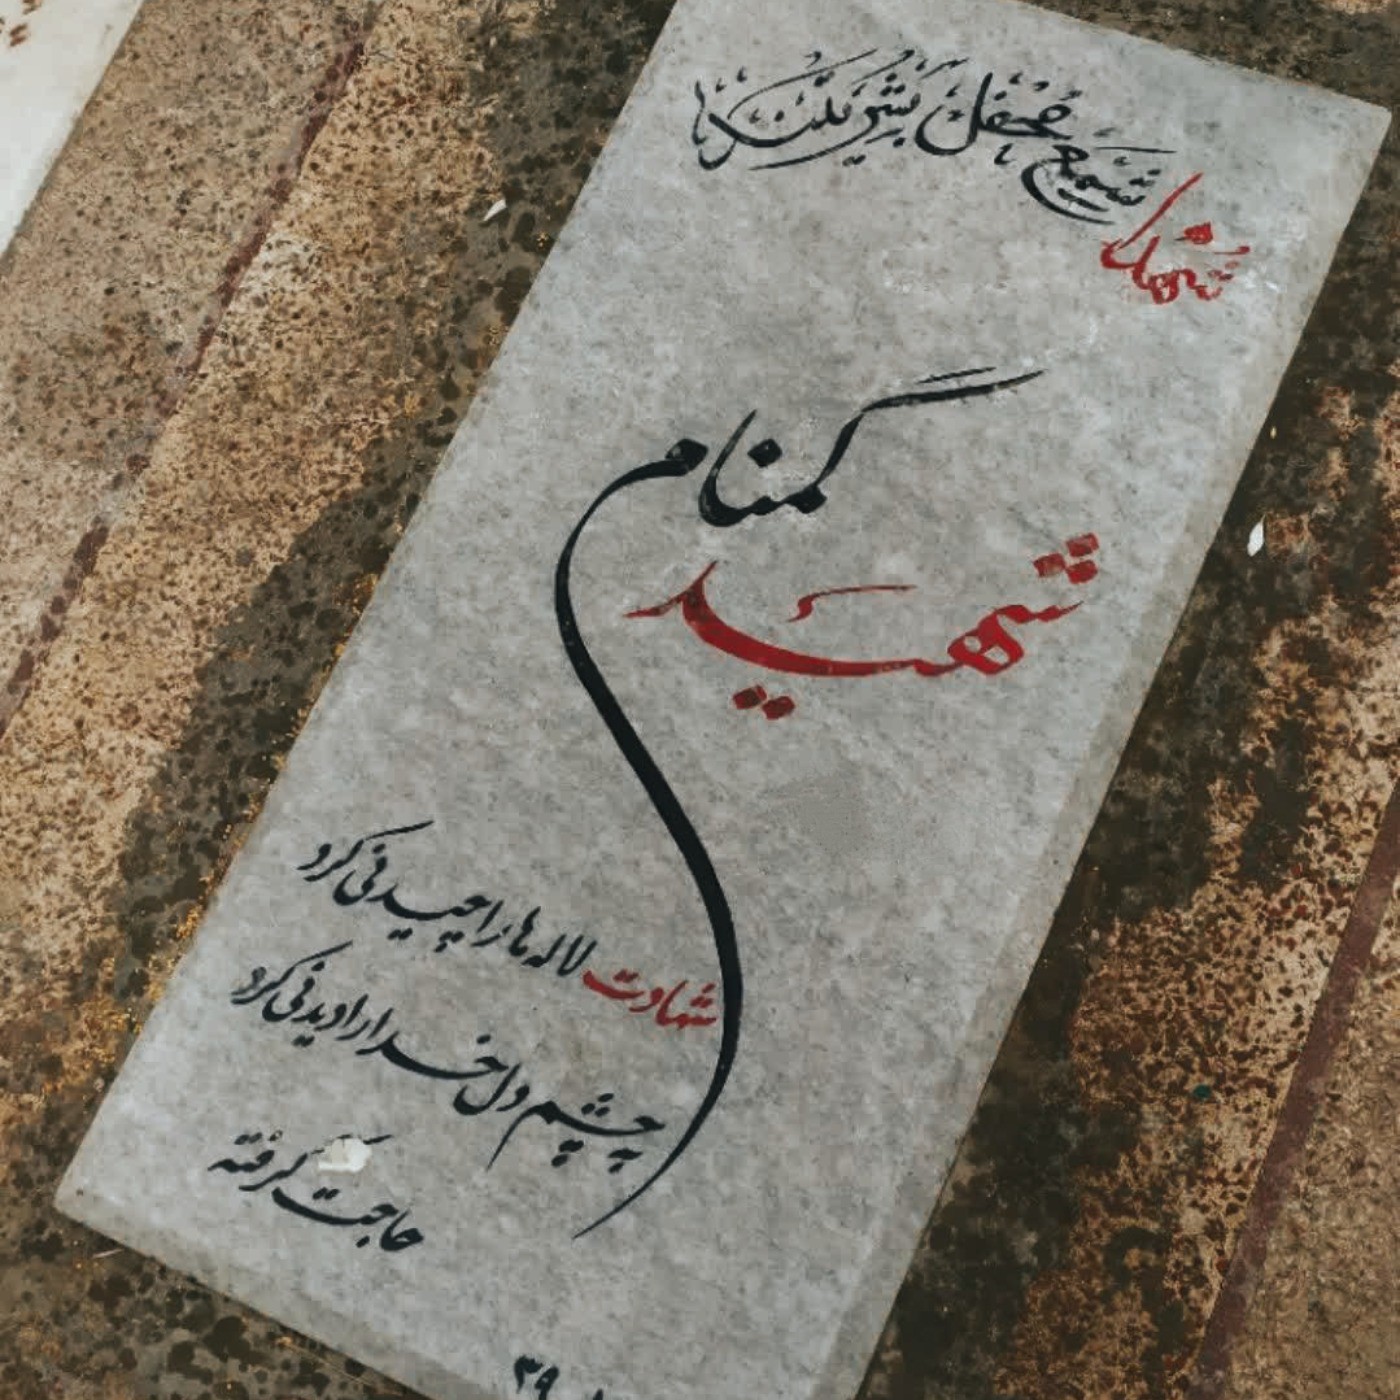 شهدا شمع محفل بشریتند
شهید گمنام
شهادت لاله ها را چیدنی کرد
چشم دل خدا را دیدنی کرد
حاجت گرفته